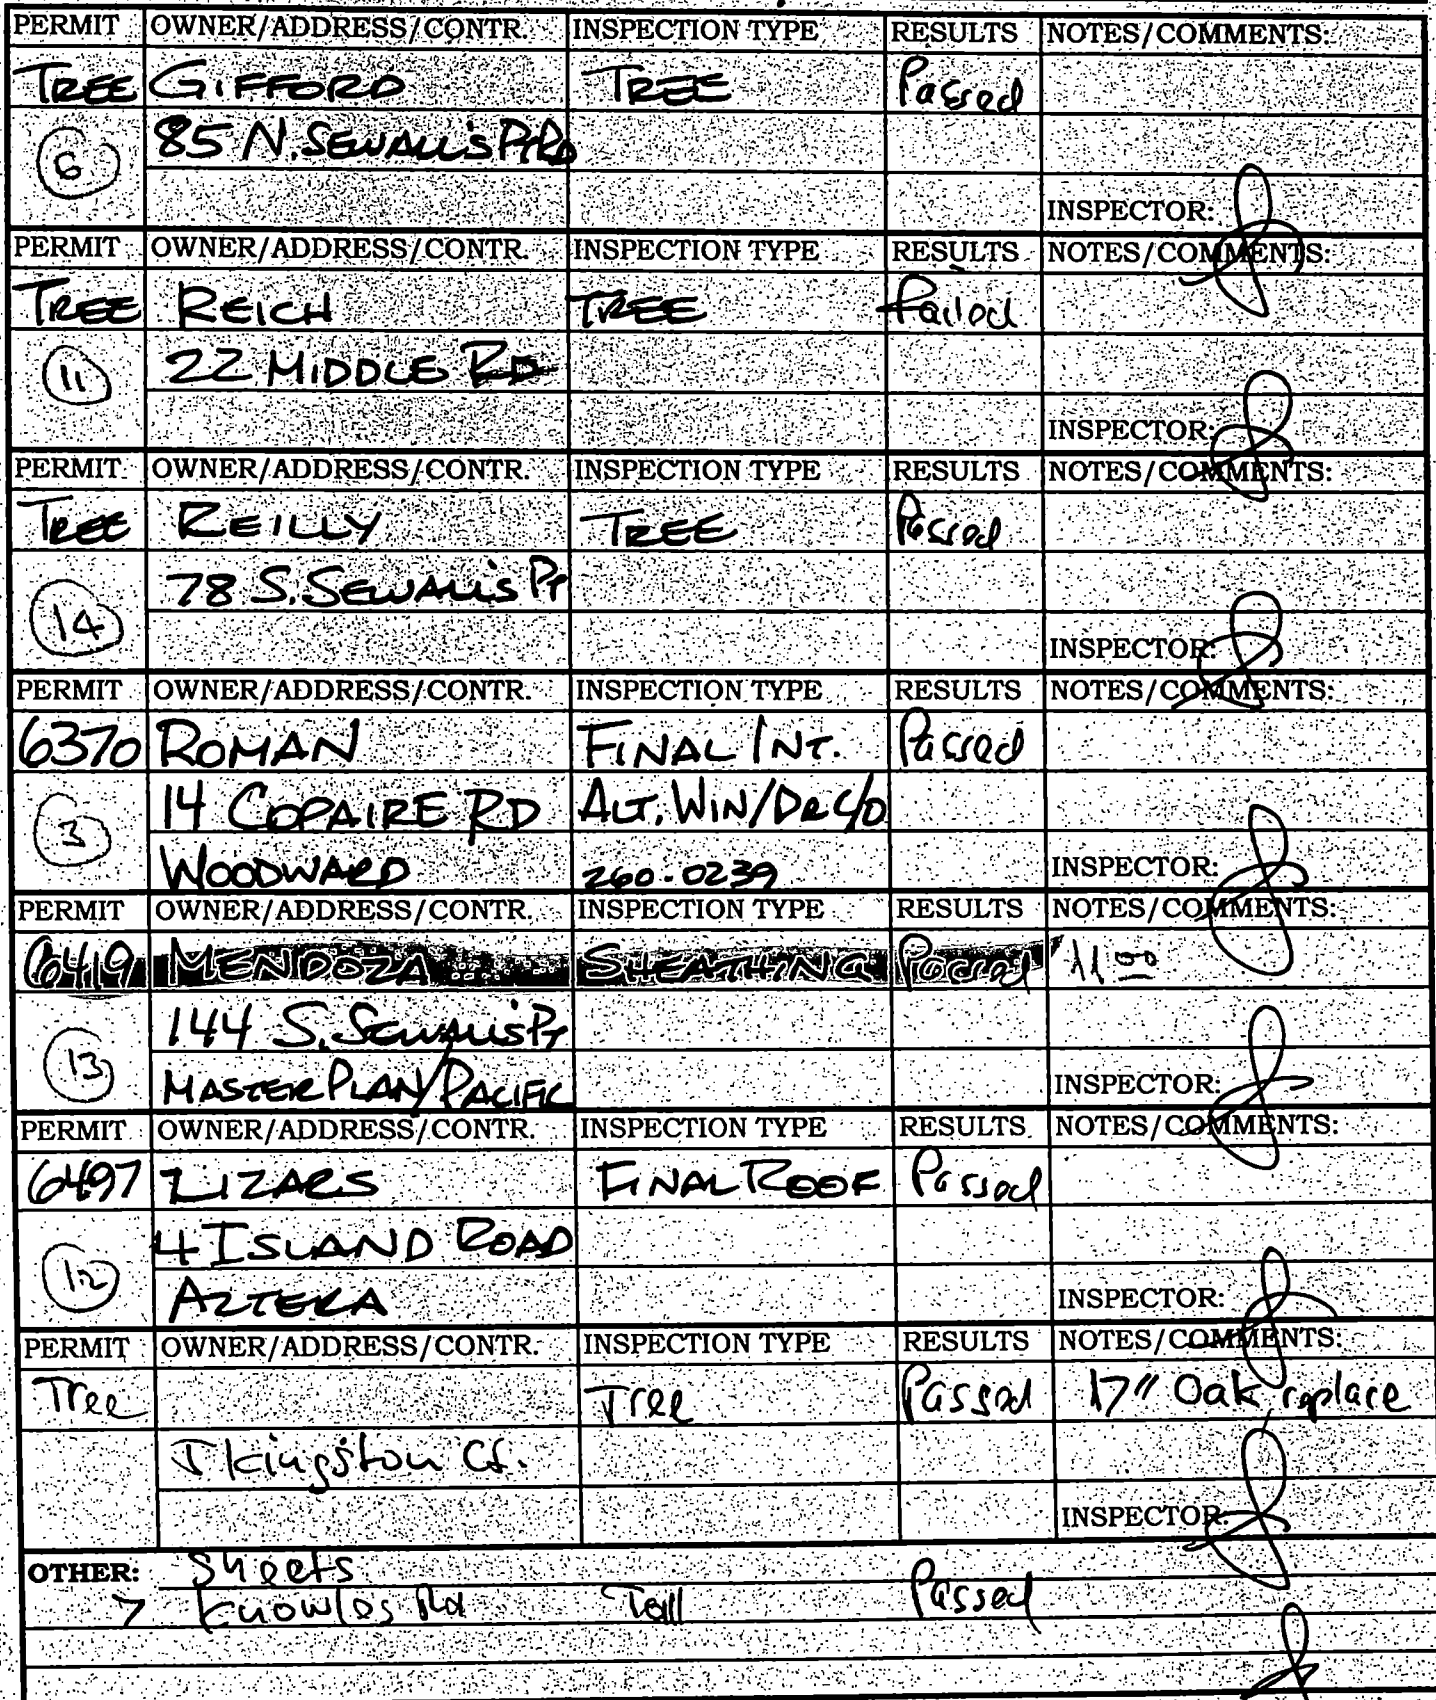 PERMIT OWNER/ADDRESS/CONTR. INSPECTION TYPE RESULTS NOTES/COMMENTS:
TREE GIFFORD TREE Passed
6 85 N. SEWALL'S PT RD
INSPECTOR:
PERMIT OWNER/ADDRESS/CONTR. INSPECTION TYPE RESULTS NOTES/COMMENTS:
TREE REICH TREE Failed
11 22 MIDDLE RD
INSPECTOR:
PERMIT OWNER/ADDRESS/CONTR. INSPECTION TYPE RESULTS NOTES/COMMENTS:
TREE REILLY TREE Passed
14 78 S. SEWALL'S PT
INSPECTOR:
PERMIT OWNER/ADDRESS/CONTR. INSPECTION TYPE RESULTS NOTES/COMMENTS:
6370 ROMAN FINAL INT. Passed
3 14 COPAIRE RD ALT. WIN/DR C/O
WOODWARD 260-0239 INSPECTOR:
PERMIT OWNER/ADDRESS/CONTR. INSPECTION TYPE RESULTS NOTES/COMMENTS:
6419 MENDOZA SHEATHING Passed 11 00
13 144 S. SEWALL'S PT
MASTERPLAN/PACIFIC INSPECTOR:
PERMIT OWNER/ADDRESS/CONTR. INSPECTION TYPE RESULTS NOTES/COMMENTS:
6497 LIZARS FINAL ROOF Passed
12 4 ISLAND ROAD
AZTEKA INSPECTOR:
PERMIT OWNER/ADDRESS/CONTR. INSPECTION TYPE RESULTS NOTES/COMMENTS:
Tree Tree Passed 17" Oak replace
Kingston Ct.
INSPECTOR:
OTHER: Sheets
7 Knowles Rd Passed